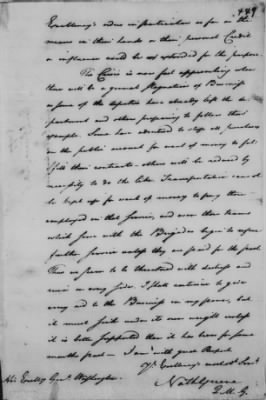 449
Excellency's orders in particular as far in the
means in their hands or their personal Credit
or influence could be extended for the purpose.
The Crisis is now fast approaching when
there will be a general Stagnation of Business
as some of the deputies have already left the de-
partment and others preparing to follow their
example. Some have advertised to stop all purchases
on the public account for want of money to ful-
fill their contracts others will be reduced by
necessity to do the like. Transportation cannot
be kept up for want of money to pay those
employed in that Service, and even those teams
which serve with the Brigades begin to refuse
further service unless they are paid for the past.
Thus we seem to be threatened with distress and
ruin on every side. I shall continue to give
every aid to the Business in my power, but
it must sink under its own weight unless
it is better supported than it has been for some
months past. I am with great Respect
Yr. Excellency's most Obt. Servt.
Nath Greene
Q.M.G.
His Excelly. Genl. Washington